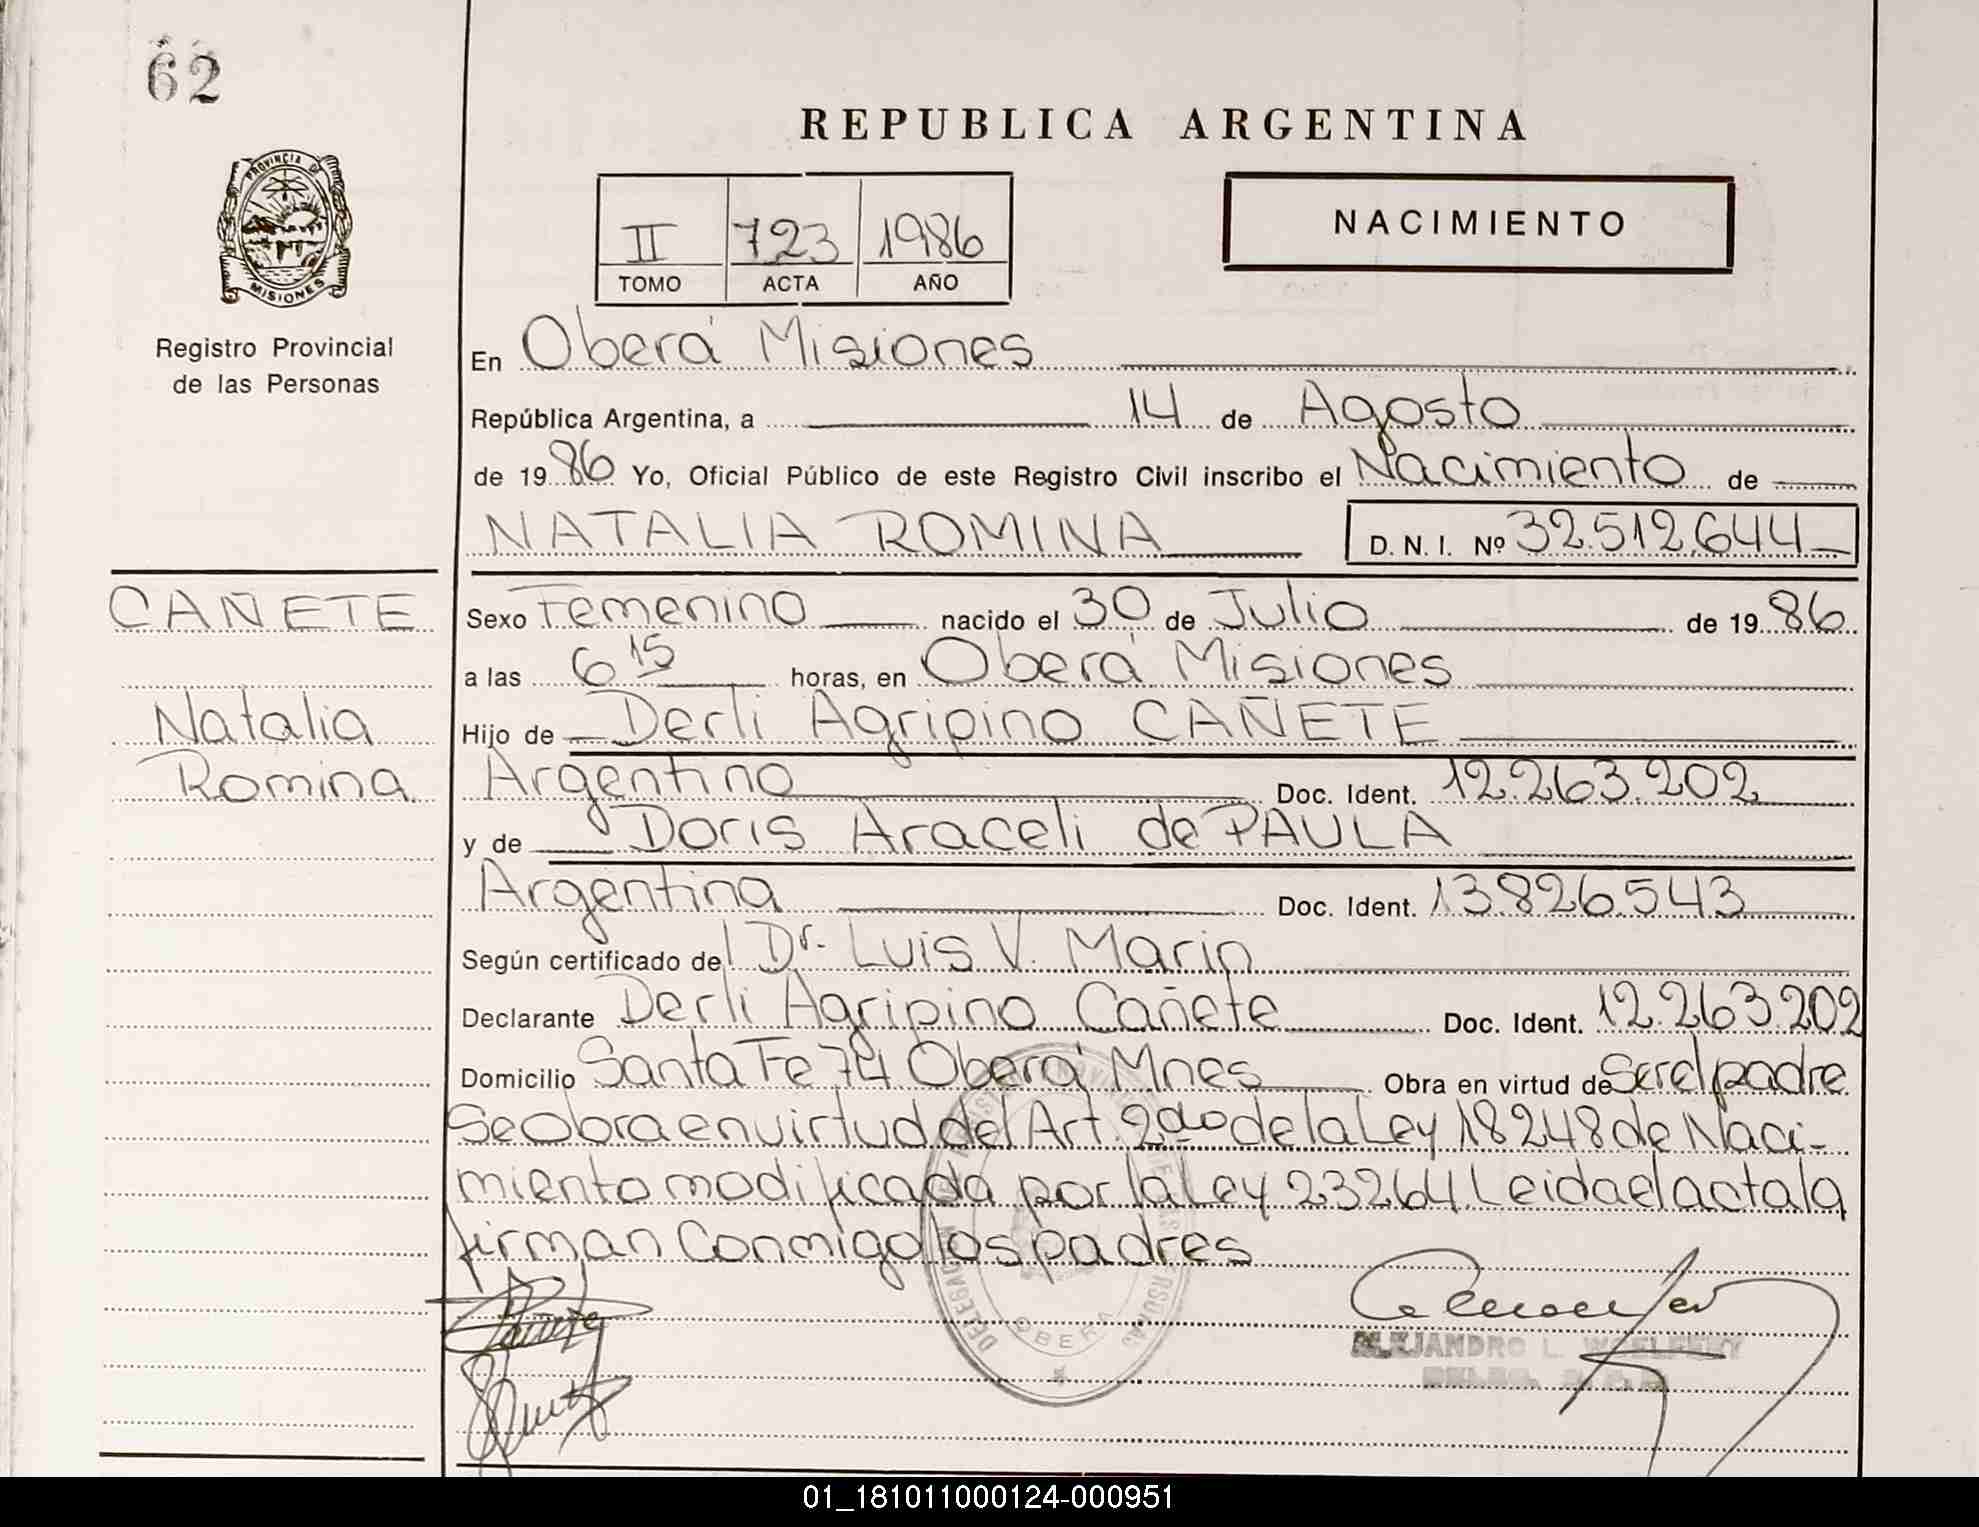 62
REPUBLICA ARGENTINA
PROVINCIA DE
MISIONES
II 723 1986
TOMO ACTA AÑO
NACIMIENTO
Registro Provincial
de las Personas
En Oberá Misiones
República Argentina, a 14 de Agosto
de 1986 Yo, Oficial Público de este Registro Civil inscribo el Nacimiento de
NATALIA ROMINA D. N. I. Nº 32.512.644
CAÑETE
Natalia
Romina
Sexo Femenino nacido el 30 de Julio de 1986
a las 6 15 horas, en Oberá Misiones
Hijo de Derli Agripino CAÑETE
Argentino Doc. Ident. 12.263.202
y de Doris Araceli de PAULA
Argentina Doc. Ident. 13.826.543
Según certificado del Dr. Luis V. Marin
Declarante Derli Agripino Cañete Doc. Ident. 12.263.202
Domicilio Santa Fe 74 Oberá Mnes Obra en virtud de Ser el padre
Se Obra en virtud del Art. 2do de la Ley 18248 de Naci-
miento modificada por la Ley 23264. Leida el acta la
firman Conmigo los padres
Cañete
OBERA
ALEJANDRO L.
01_181011000124-000951